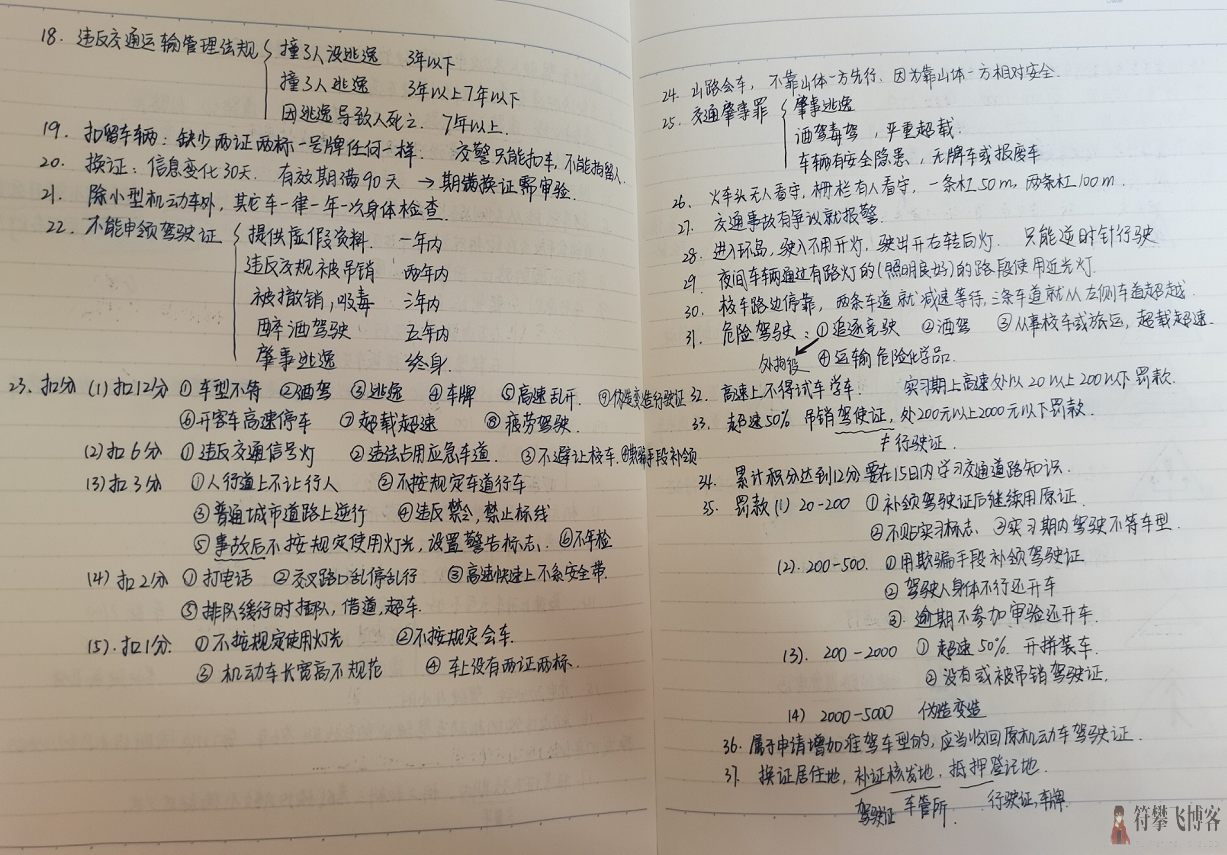 18. 违反交通运输管理法规 撞了人没逃逸 3年以下
撞了人逃逸 3年以上7年以下
因逃逸导致人死亡 7年以上.
19. 扣留车辆: 缺少两证两标一号牌任何一样. 交警只能扣车,不能拘留人.
20. 换证: 信息变化30天. 有效期满90天 → 期满换证需审验.
21. 除小型机动车外,其它车一律一年一次身体检查.
22. 不能申领驾驶证 提供虚假资料. 一年内
违反交规被吊销 两年内
被撤销,吸毒 三年内
醉酒驾驶 五年内
肇事逃逸 终身.
23. 扣分 (1) 扣12分 ①车型不符 ②酒驾 ③逃逸 ④车牌 ⑤高速乱开. ⑨伪造变造行驶证
⑥开客车高速停车 ⑦超载超速 ⑧疲劳驾驶.
(2) 扣6分 ①违反交通信号灯 ②违法占用应急车道. ③不避让校车. ④欺骗手段补领
(3) 扣3分 ①人行道上不让行人 ②不按规定车道行车
③普通城市道路上逆行 ④违反禁令,禁止标线
⑤事故后不按规定使用灯光,设置警告标志. ⑥不年检
(4) 扣2分 ①打电话 ②交叉路口乱停乱行 ③高速快速上不系安全带.
⑤排队缓行时插队,借道,超车.
(5). 扣1分: ①不按规定使用灯光 ②不按规定会车.
③机动车长宽高不规范 ④车上没有两证两标.
24. 山路会车, 不靠山体一方先行. 因为靠山体一方相对安全.
25. 交通肇事罪 肇事逃逸
酒驾毒驾, 严重超载.
车辆有安全隐患, 无牌车或报废车
26. 火车头无人看守,栅栏有人看守, 一条杠50m,两条杠100m.
27. 交通事故有争议就报警.
28. 进入环岛,驶入不用开灯.驶出开右转向灯. 只能逆时针行驶
29. 夜间车辆通过有路灯的(照明良好)的路段使用近光灯.
30. 校车路边停靠, 两条车道就减速等待,三条车道就从左侧车道超越.
31. 危险驾驶: ①追逐竞驶 ②酒驾 ③从事校车或旅运,超载超速.
处拘役 ④运输危险化学品.
32. 高速上不得试车学车. 实习期上高速处以20以上200以下罚款.
33. 超速50% 吊销驾驶证,处200元以上2000元以下罚款.
≠行驶证.
34. 累计积分达到12分要在15日内学习交通道路知识.
35. 罚款(1) 20-200 ①补领驾驶证后继续用原证.
②不贴实习标志 ③实习期内驾驶不符车型.
(2). 200-500. ①用欺骗手段补领驾驶证
②驾驶人身体不行还开车
③逾期不参加审验还开车.
(3). 200-2000 ①超速50%. 开拼装车.
②没有或被吊销驾驶证.
(4) 2000-5000 伪造变造
36. 属于申请增加准驾车型的,应当收回原机动车驾驶证.
37. 换证居住地,补证核发地,抵押登记地.
驾驶证 车管所. 行驶证,车牌.
符攀飞博客